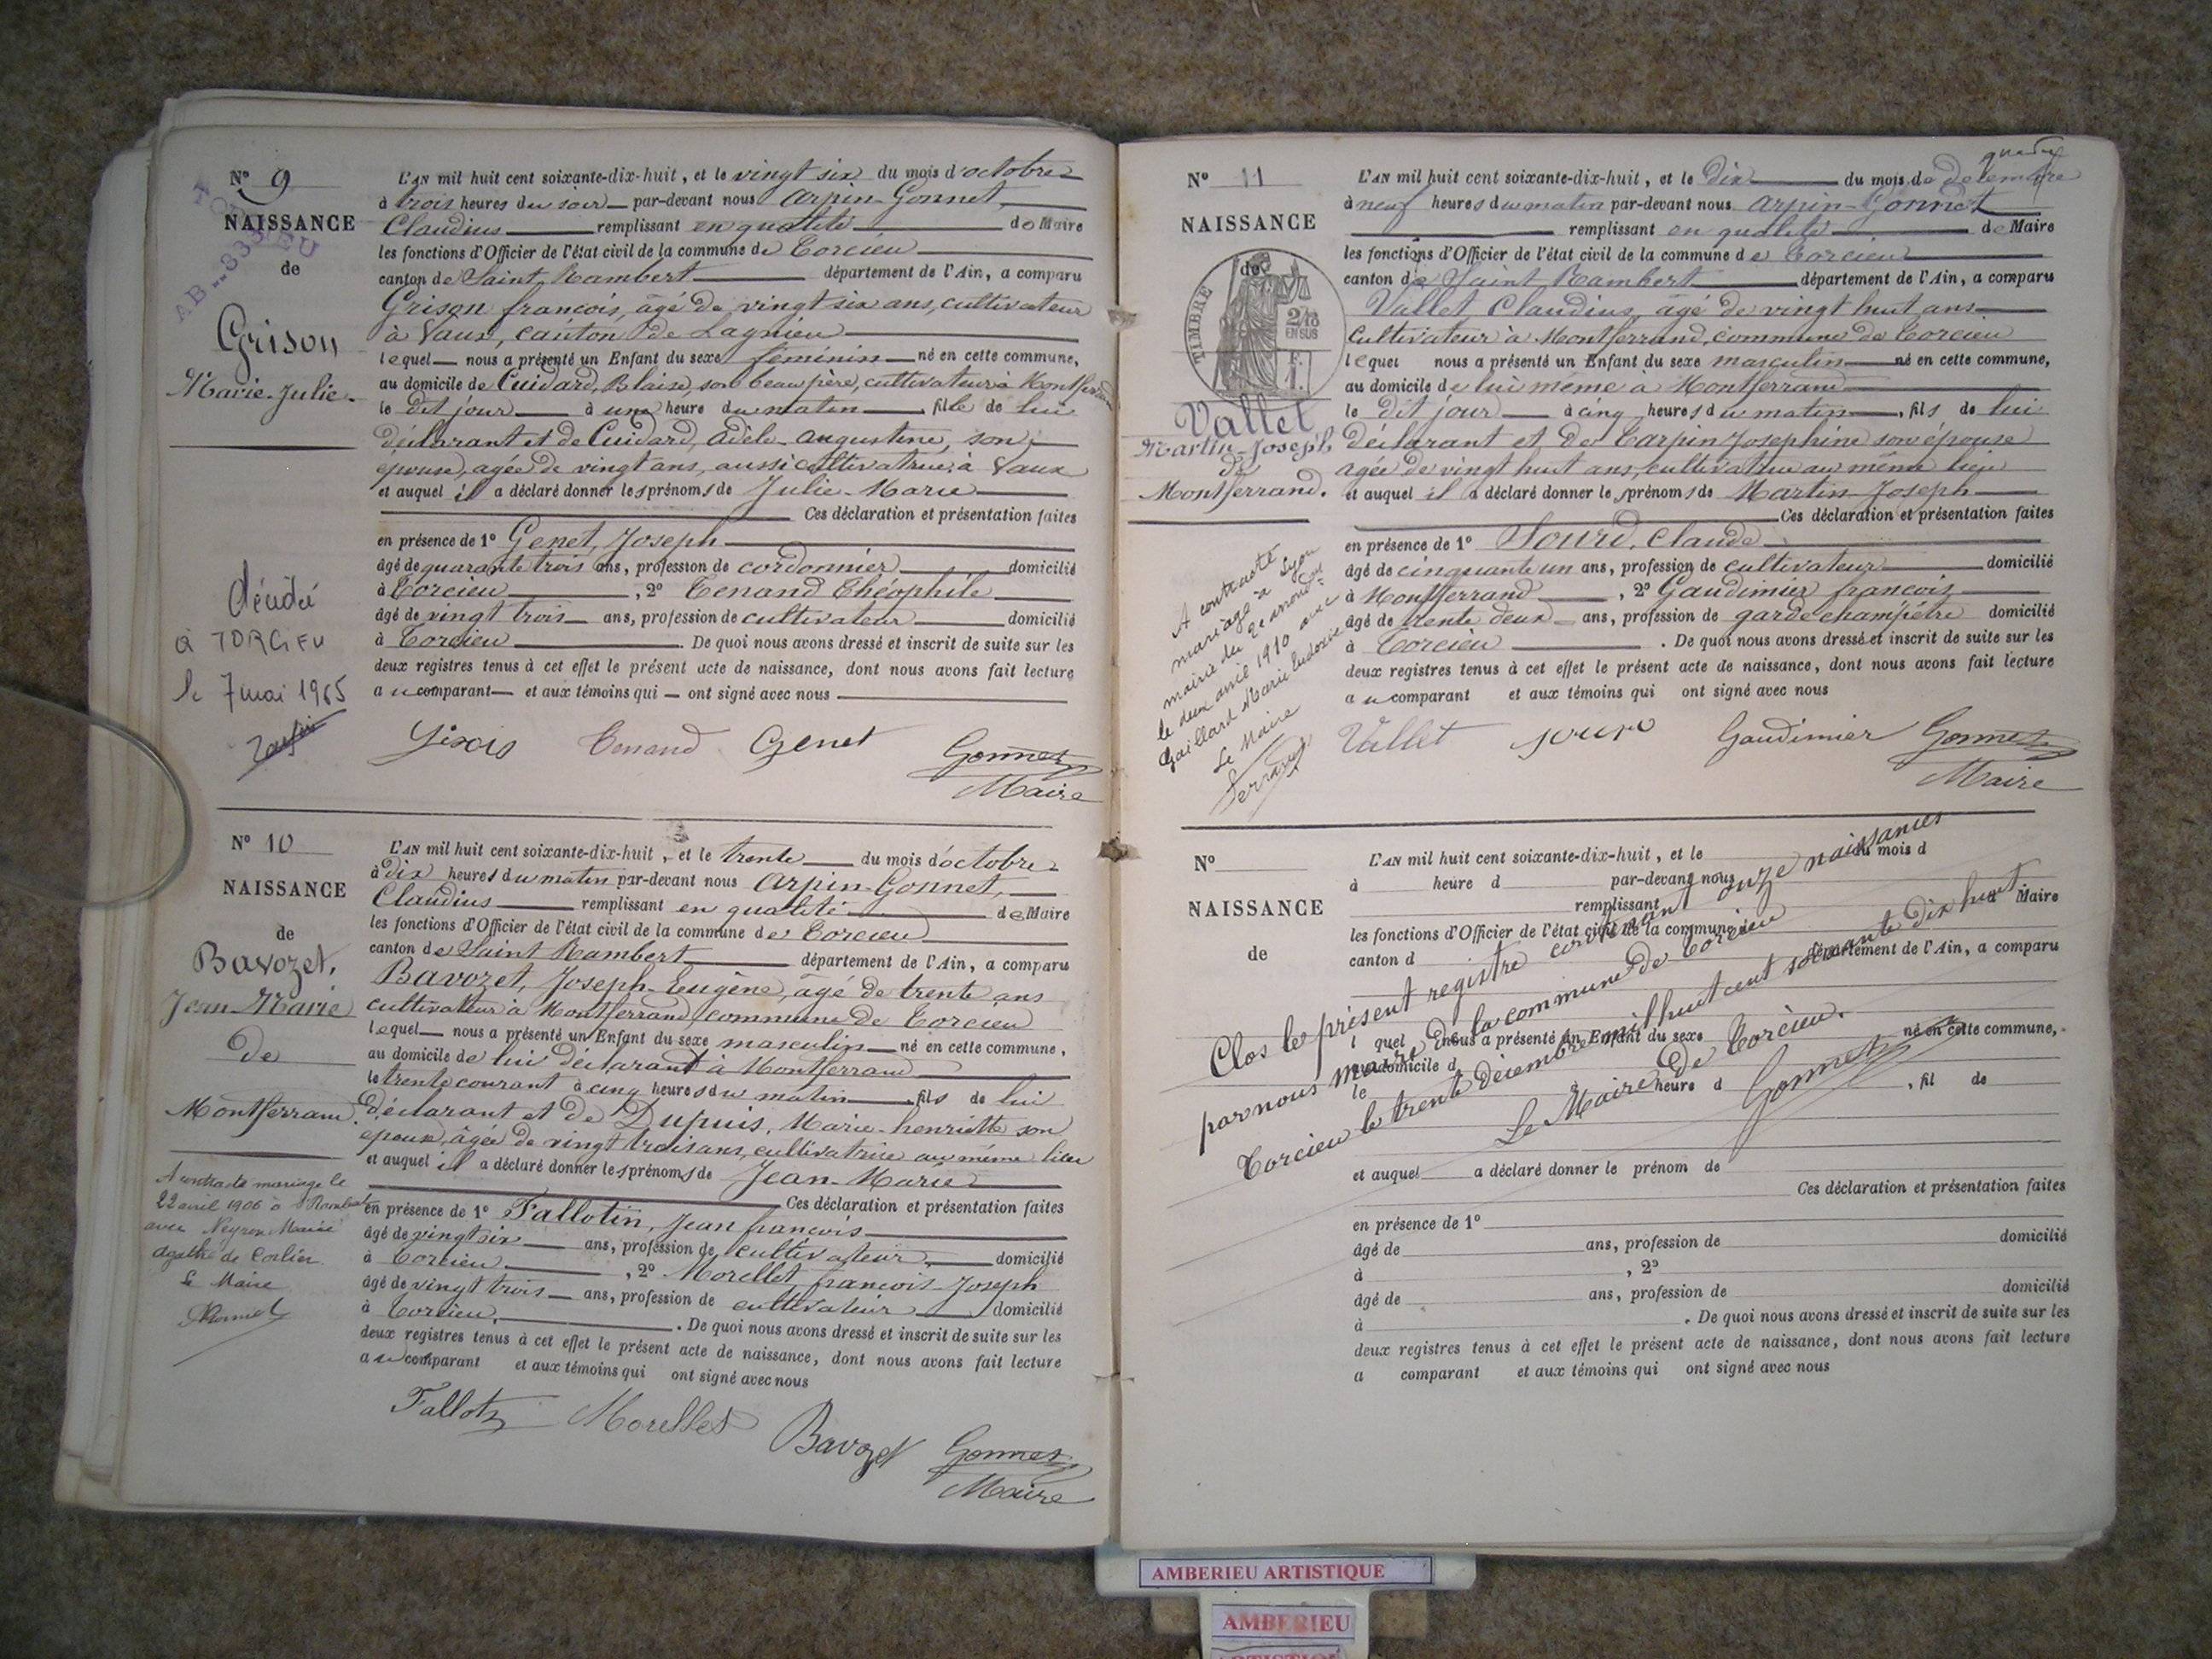 N° 9
NAISSANCE
de
Grison
Marie-Julie.
décédé
à TORCIEU
le 7 mai 1965
L'AN mil huit cent soixante-dix-huit, et le vingt six du mois d'octobre
à trois heures du soir par-devant nous Arpin-Gonnet,
Claudius remplissant en qualité de Maire
les fonctions d'Officier de l'état civil de la commune de Torcieu
canton de Saint Rambert département de l'Ain, a comparu
Grison françois, âgé de vingt six ans, cultivateur
à Vaux, canton de Lagnieu
lequel nous a présenté un Enfant du sexe féminin né en cette commune,
au domicile de Cuidard, Blaise, son beau père, cultivateur à Montferrand
le dit jour à une heure du matin, fille de lui
déclarant et de Cuidard, Adèle-Augustine, son
épouse, agée de vingt ans, aussi cultivatrice, à Vaux
et auquel il a déclaré donner les prénoms de Julie-Marie
Ces déclaration et présentation faites
en présence de 1° Genet, Joseph
âgé de quarante trois ans, profession de cordonnier domicilié
à Torcieu, 2° Tenand Théophile
âgé de vingt trois ans, profession de cultivateur domicilié
à Torcieu. De quoi nous avons dressé et inscrit de suite sur les
deux registres tenus à cet effet le présent acte de naissance, dont nous avons fait lecture
au comparant et aux témoins qui ont signé avec nous
Tenand Genet Gonnet
Maire
N° 10
NAISSANCE
de
Bavozet,
Jean-Marie
de
Montferrand.
A contracté mariage le
22 avril 1906 à St Rambert
avec Neyron Marie
Agathe de Corlier
Le Maire
L'AN mil huit cent soixante-dix-huit, et le trente du mois d'octobre
à dix heures du matin par-devant nous Arpin-Gonnet,
Claudius remplissant en qualité de Maire
les fonctions d'Officier de l'état civil de la commune de Torcieu
canton de Saint Rambert département de l'Ain, a comparu
Bavozet, Joseph-Eugène, âgé de trente ans
cultivateur à Montferrand, commune de Torcieu
lequel nous a présenté un Enfant du sexe masculin né en cette commune,
au domicile de lui déclarant à Montferrand
le trente courant à cinq heures du matin, fils de lui
déclarant et de Dupuis, Marie-henriette son
épouse, âgée de vingt trois ans, cultivatrice au même lieu
et auquel il a déclaré donner les prénoms de Jean-Marie
Ces déclaration et présentation faites
en présence de 1° Fallotin, Jean françois
âgé de vingt six ans, profession de cultivateur, domicilié
à Torcieu, 2° Morellet, françois-Joseph
âgé de vingt trois ans, profession de cultivateur domicilié
à Torcieu. De quoi nous avons dressé et inscrit de suite sur les
deux registres tenus à cet effet le présent acte de naissance, dont nous avons fait lecture
au comparant et aux témoins qui ont signé avec nous
Morellet Bavozet Gonnet
Maire
N° 11
NAISSANCE
de
TIMBRE
2/10
EN SUS
Vallet
Martin-Joseph
de
Montferrand.
A contracté
mariage à Lyon
mairie du 2e arrondt
le deux avril 1910 avec
Gaillard Marie Ludovic
Le Maire
L'AN mil huit cent soixante-dix-huit, et le dix du mois de décembre
à neuf heures du matin par-devant nous Arpin-Gonnet
remplissant en qualité de Maire
les fonctions d'Officier de l'état civil de la commune de Torcieu
canton de Saint Rambert département de l'Ain, a comparu
Vallet, Claudius, agé de vingt huit ans
Cultivateur à Montferrand, commune de Torcieu
lequel nous a présenté un Enfant du sexe masculin né en cette commune,
au domicile de lui même à Montferrand
le dit jour à cinq heures du matin, fils de lui
déclarant et de Carpin Josephine son épouse
agée de vingt huit ans, cultivatrice au même lieu
et auquel il a déclaré donner les prénoms de Martin-Joseph
Ces déclaration et présentation faites
en présence de 1° Sourd, Claude
âgé de cinquante un ans, profession de cultivateur domicilié
à Montferrand, 2° Gaudimier françois
âgé de trente deux ans, profession de garde champêtre domicilié
à Torcieu. De quoi nous avons dressé et inscrit de suite sur les
deux registres tenus à cet effet le présent acte de naissance, dont nous avons fait lecture
au comparant et aux témoins qui ont signé avec nous
Vallet Sourd Gaudimier Gonnet
Maire
N°
NAISSANCE
de
L'AN mil huit cent soixante-dix-huit, et le du mois d
à heure d par-devant nous
remplissant d Maire
les fonctions d'Officier de l'état civil de la commune d
canton d département de l'Ain, a comparu
l quel nous a présenté un Enfant du sexe né en cette commune,
au domicile d
le à heure d, fil de
et auquel a déclaré donner le prénom de
Ces déclaration et présentation faites
en présence de 1°
âgé de ans, profession de domicilié
à, 2°
âgé de ans, profession de domicilié
à. De quoi nous avons dressé et inscrit de suite sur les
deux registres tenus à cet effet le présent acte de naissance, dont nous avons fait lecture
a comparant et aux témoins qui ont signé avec nous
Clos le présent registre contenant onze naissances
par nous maire de la commune de Torcieu
Torcieu le trente décembre mil huit cent soixante dix huit.
Le Maire de Torcieu.
Gonnet
AMBERIEU ARTISTIQUE
AMBERIEU
ARTISTIQUE